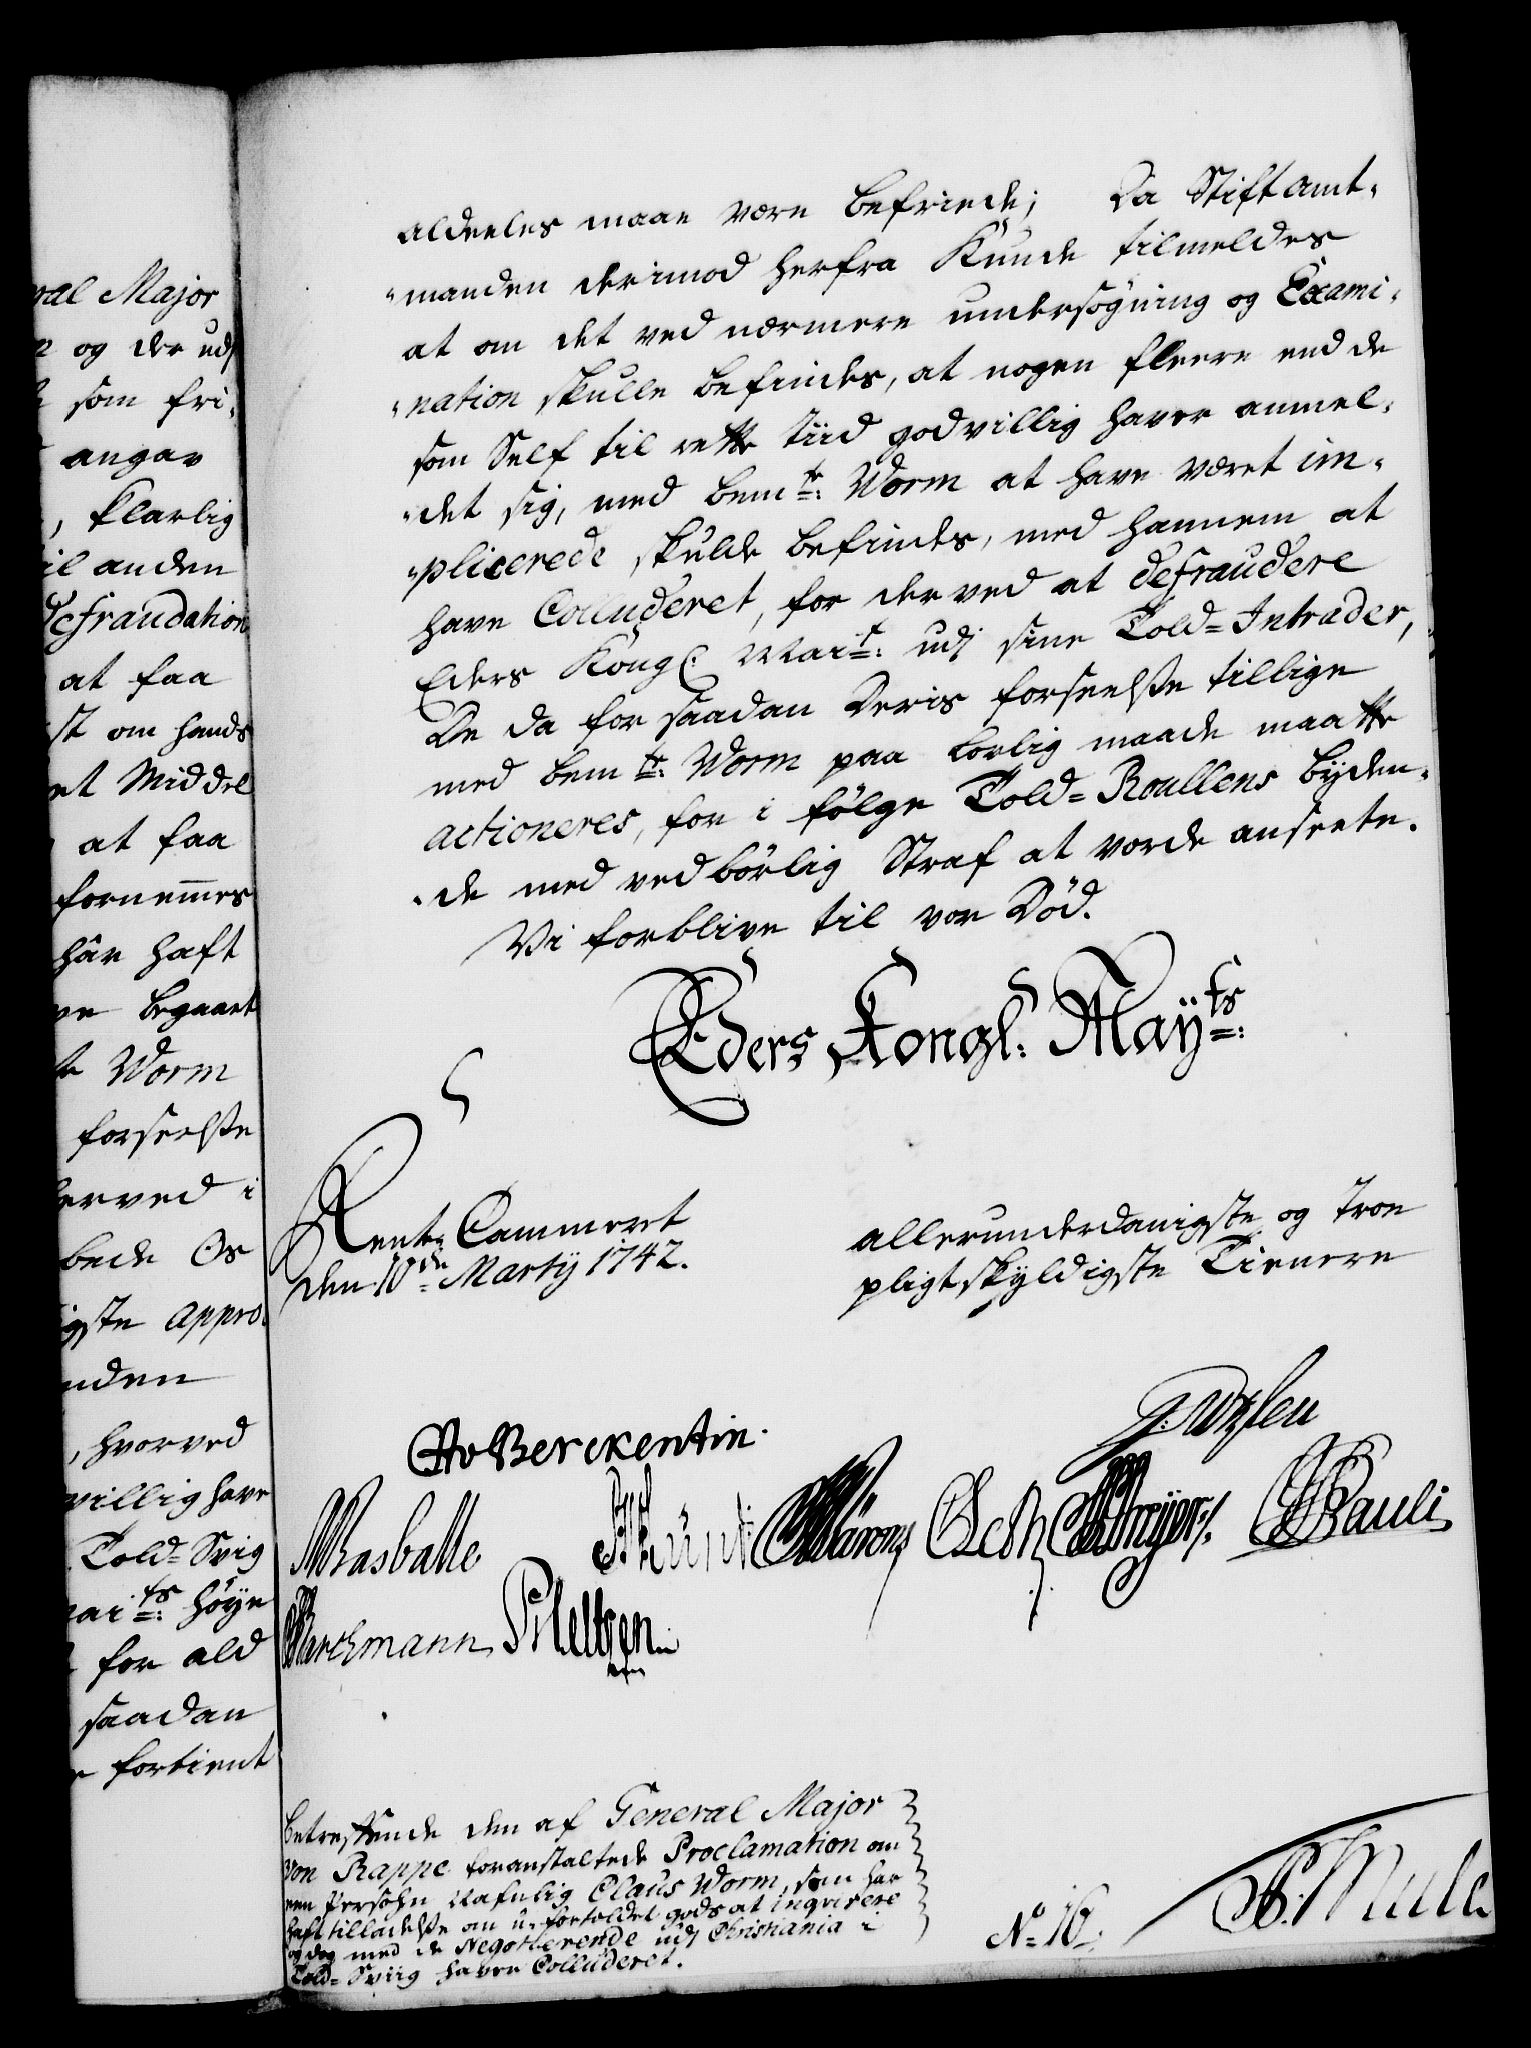 ral Major
og der udj
som fri-
angav
, klarlig
il anden
defraudation
at faa
st om hands
et Middel
at faa
fornemmes
hâr haft
ve begaaet
te Worm
forseelse
herved i
bede Os
igste appro-
nden
, hvorved
villig have
Told=Svig
Mai ts: høye
for ald
saadan
fortient
aldeeles maae være befriede; Da Stiftamt-
-manden derimod herfra Kunde tilmeldes
at om det ved nærmere undersøgning og Exami-
-nation skulle befindes, at nogen fleere end de
som Self til rette tiid godvillig haver anmel-
-det sig, med bem te: Worm at have været im-
-plicerede, skulde befindes, med hannem at
have Colluderet, for derved at defraudere
Eders Kongl: Mai t: udj sine Told=Intrader,
De da for saadan Deris forseelse tillige
med bem te: Worm paa lovlig maade maatte
actioneres, for i følge Told=Roullens byden-
-de med vedbørlig Straf at vorde anseete.
Vi forblive til vor Død.
Eders Kongl: Mayts:
Rente Cammeret
den 10de Marty 1742.
allerunderdanigste og troe
pligtskyldigste Tienere
Berckentin.
Basballe
Pauli
Barchmann
PHeltzen
betreffende den af General Major
von Rappe foranstaltede Proclamation om
een Persohn Nafnlig Claus Worm, som har
haft tilladelse om u-fortoldet gods at inqvirere
og dog med de Negotierende udj Christiania i
Told=Sviig haver Colluderet.
No 16.
Mule